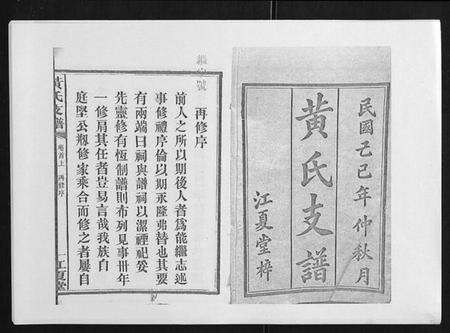 民國乙巳年仲秋月
黃氏支譜
江夏堂梓
再修序
前人之所以期後人者為能繼志述
事修禮序倫以期永隆弗替也其要
有兩端曰祠與譜祠以潔禋祀妥
先靈修有恆制譜則布列見事卅年
一修肩其任者豈易言哉我族自
庭堅公剏修家乘合而修之者屢自
黃氏支譜
卷首上
再修序
江夏堂